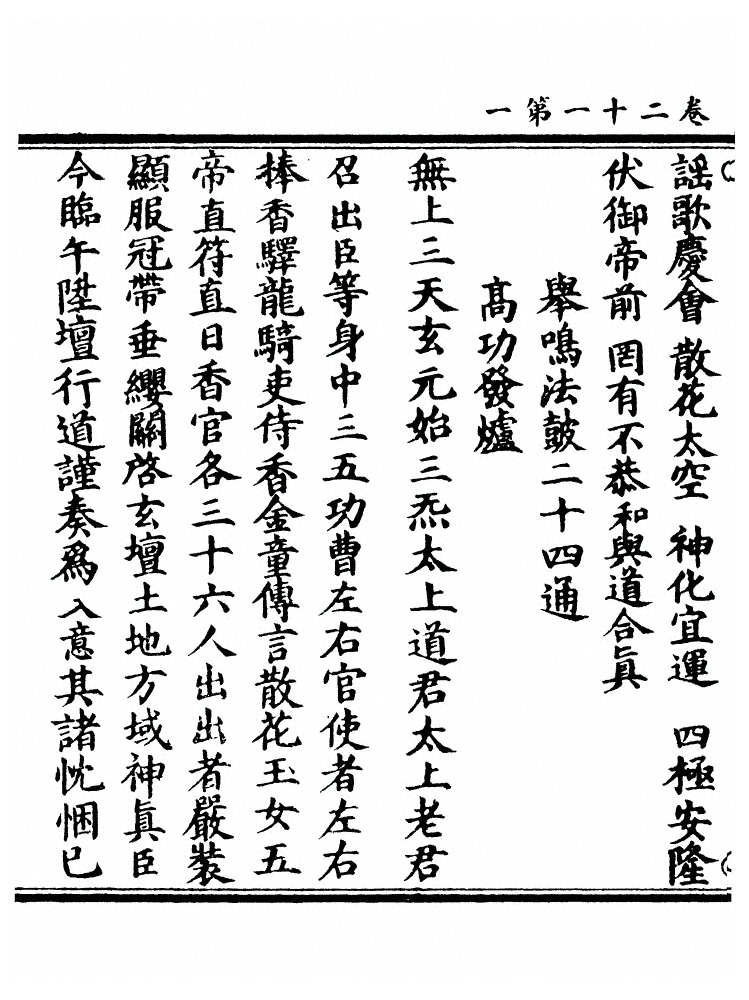 卷二十一第一
謡歌慶會 散花太空 神化宜運 四極安隆
伏御帝前 罔有不恭和與道合眞
舉鳴法鼓二十四通
髙功發爐
無上三天玄元始三炁太上道君太上老君
召出臣等身中三五功曹左右官使者左右
捧香驛龍騎吏侍香金童傳言散花玉女五
帝直符直日香官各三十六人出出者嚴裝
顯服冠帶垂纓關啓玄壇土地方域神眞臣
今臨午陞壇行道謹奏爲入意其諸忱悃已